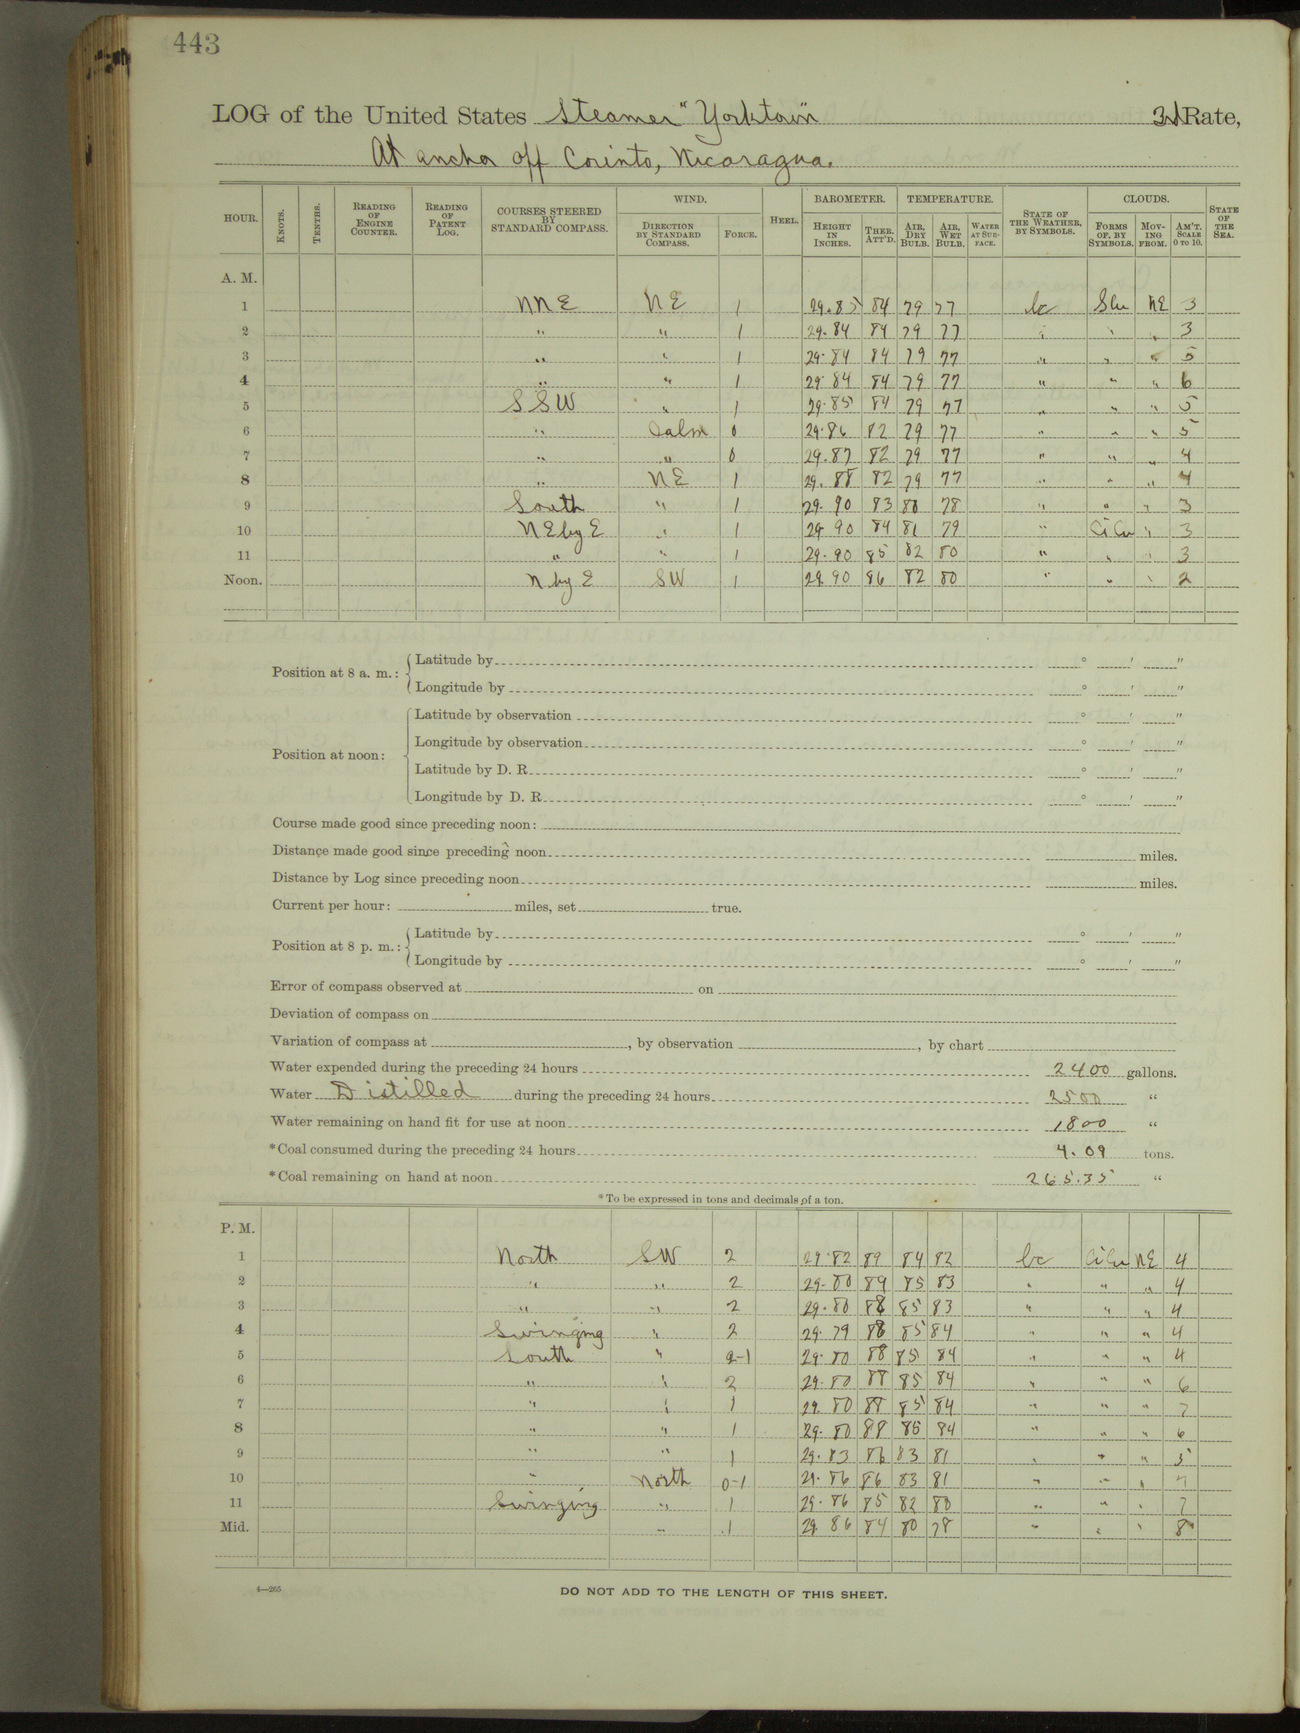 443
LOG of the United States Steamer "Yorktown" 3rd Rate,
At anchor off Corinto, Nicaragua.
HOUR. KNOTS. TENTHS. READING OF ENGINE COUNTER. READING OF PATENT LOG. COURSES STEERED BY STANDARD COMPASS. WIND. DIRECTION BY STANDARD COMPASS. FORCE. HEEL. BAROMETER. HEIGHT IN INCHES. THER. ATT'D. TEMPERATURE. AIR, DRY BULB. AIR, WET BULB. WATER AT SURFACE. STATE OF THE WEATHER, BY SYMBOLS. CLOUDS. FORMS OF, BY SYMBOLS. MOVING FROM. AM'T. SCALE 0 TO 10. STATE OF THE SEA.
A. M.
1 NNE NE 1 29.85 84 79 77 bc SCu NE 3
2 " " 1 29.84 84 79 77 " " " 3
3 " " 1 29.84 84 79 77 " " " 5
4 " " 1 29.84 84 79 77 " " " 6
5 SSW " 1 29.85 84 79 77 " " " 5
6 " Calm 0 29.86 82 79 77 " " " 5
7 " " 0 29.87 82 79 77 " " " 4
8 " NE 1 29.88 82 79 77 " " " 4
9 South " 1 29.90 83 80 78 " " " 3
10 NE by E " 1 29.90 84 81 79 " CiCu " 3
11 " " 1 29.90 85 82 80 " " " 3
Noon. N by E SW 1 29.90 86 82 80 " " " 2
Position at 8 a. m.: Latitude by ° ′ ″
Longitude by ° ′ ″
Position at noon: Latitude by observation ° ′ ″
Longitude by observation ° ′ ″
Latitude by D. R. ° ′ ″
Longitude by D. R. ° ′ ″
Course made good since preceding noon:
Distance made good since preceding noon miles.
Distance by Log since preceding noon miles.
Current per hour: miles, set true.
Position at 8 p. m.: Latitude by ° ′ ″
Longitude by ° ′ ″
Error of compass observed at on
Deviation of compass on
Variation of compass at , by observation , by chart
Water expended during the preceding 24 hours 2400 gallons.
Water Distilled during the preceding 24 hours 2500 "
Water remaining on hand fit for use at noon 1800 "
*Coal consumed during the preceding 24 hours 4.09 tons.
*Coal remaining on hand at noon 265.35 "
*To be expressed in tons and decimals of a ton.
P. M.
1 North SW 2 29.82 89 84 82 bc CiCu NE 4
2 " " 2 29.80 89 85 83 " " " 4
3 " " 2 29.80 88 85 83 " " " 4
4 Swinging " 2 29.79 88 85 84 " " " 4
5 South " 2-1 29.80 88 85 84 " " " 4
6 " " 2 29.80 88 85 84 " " " 6
7 " " 1 29.80 88 85 84 " " " 7
8 " " 1 29.80 88 85 84 " " " 6
9 " " 1 29.83 86 83 81 " " " 5
10 " North 0-1 29.86 86 83 81 " " " 7
11 Swinging " 1 29.86 85 82 80 " " " 7
Mid. " 1 29.86 84 80 78 " " " 8
4—265
DO NOT ADD TO THE LENGTH OF THIS SHEET.